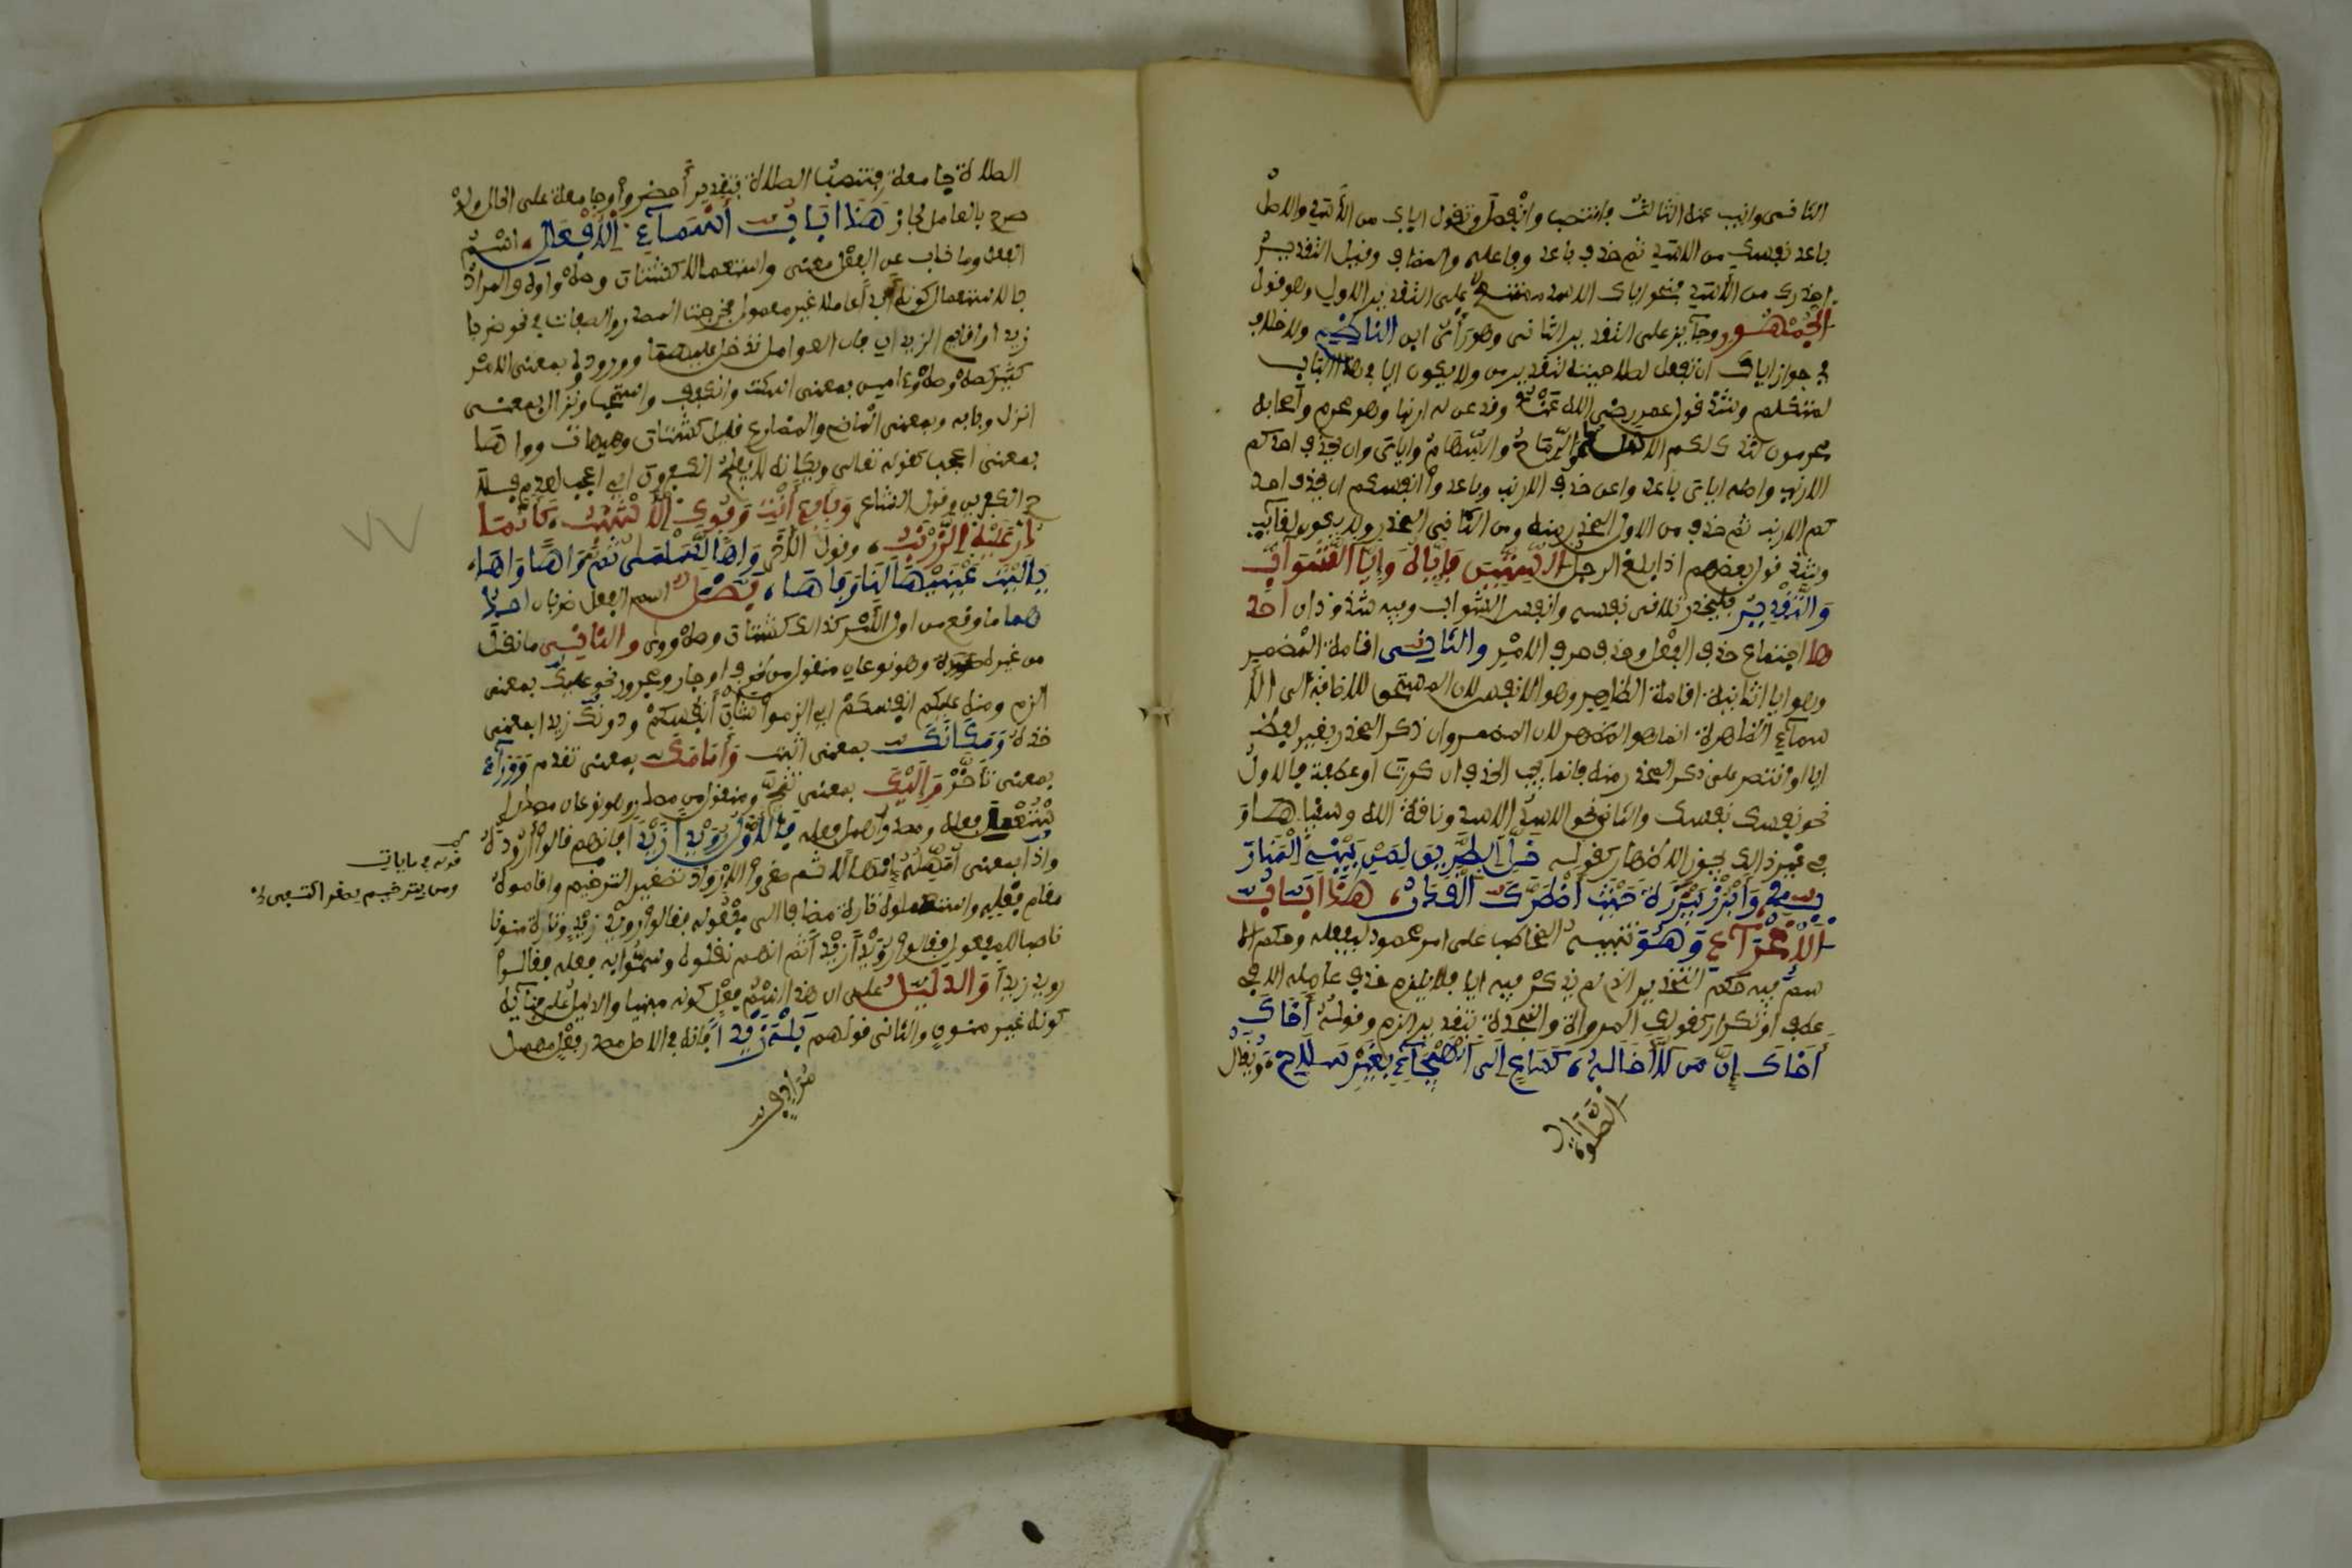 الثاني وانيب عنه الثالث فانتصب وانفصل وتقول اياك من الأسد والاصل
باعد نفسك من الاسد ثم حذف باعد وفاعله والمضاف وقيل التقدير
احذرك من الأسد فنحو اياك الاسد ممتنع على التقدير الاول وهو قول
الجمهور وجايز على التقدير الثاني وهو رأي ابن الناظم ولا خلاف
في جواز اياك ان تفعل لصلاحيته لتقدير من ولا يكون ايا في هذا الباب
لمتكلم وشذ قول عمر رضي الله عنه
لتذك لكم الاسل والرماح والسهام واياي وان يحذف احدكم
الارنب واصله اياي باعدوا عن حذف الارنب وباعدوا انفسكم ان يحذف احد
كم الارنب ثم حذف من الاول المحذر منه ومن الثاني المحذر ولا يكون لغايب
وشذ قول بعضهم اذا بلغ الرجل الستين فإياه وإيا الشواب
والتقدير فليحذر تلاقي نفسه وانفس الشواب وفيه شذوذان احد
هما اجتماع حذف الفعل وحذف حرف الامر والثاني اقامة الضمير
وهو ايا الثانية اقامة الظاهر وهو الانفس لان المستحق للاضافة الى الأ
سماء الظاهرة انما هو المظهر لا المضمر وان ذكر المحذر بغير لفظ
ايا او اقتصر على ذكر المحذر منه فانما يجب الحذف ان كررت او عطفت فالاول
نحو نفسك نفسك والثاني نحو الاسد الاسد وناقة الله وسقياها و
في غير ذلك يجوز الاظهار كقوله خل الطريق لمن يبني المنار
به وابرز ببرزة حيث اضطرك القدر هذا باب
الاغراء وهو تنبيه المخاطب على امر محمود ليفعله وحكم الا
سم فيه حكم التحذير الذي لم يذكر فيه ايا فلا يلزم حذف عامله الا في
عطف او تكرار كقولك المروءة والنجدة بتقدير الزم وقوله أخاك
أخاك إن من لا أخا له كساع إلى الهيجاء بغير سلاح ويقال
الصلاة
الصلاة جامعة فتنصب الصلاة بتقدير أحضروا وجامعة على الحال ولو
صرح بالعامل لجاز هذا باب أسماء الأفعال اسم
الفعل وما ناب عن الفعل معنى واستعمالا كشتان وصه واوه والمراد
بالاستعمال كونه ابدا عاملا غير معمول فخرجت المصدر والصفات في نحو ضربا
زيدا واقايم الزيدان فان العوامل تدخل عليهما ووروده بمعنى الامر
كثير كصه ومه وءامين بمعنى اسكت وانكفف واستجب ونزال بمعنى
انزل وبابه وبمعنى الماضي والمضارع قليل كشتان وهيهات وواها
بمعنى اعجب كقوله تعالى ويكأنه لا يفلح الكفرون اي اعجب لعدم فلا
ح الكفرين وقول الشاعر وا بأبي أنت وفوك الأشنب كأنما
ذر عليه الزرنب وقول الآخر واها لسلمى ثم واها واها
يا ليت عينيها لنا وفاها فصل اسم الفعل ضربان احد
هما ما وضع من اول الأمر كذلك كشتان وصه ووي والثاني ما نقل
من غيره وهو نوعان منقول من ظرف او جار ومجرور نحو عليك بمعنى
الزم ومنه عليكم انفسكم اي الزموا شأن أنفسكم ودونك زيدا بمعنى
خذه ومكانك بمعنى اثبت وأمامك بمعنى تقدم ووراءك
بمعنى تأخر وإليك بمعنى تنح ومنقول من مصدر وهو نوعان مصدر
استعمل فعله ومصدر اهمل فعله فالاول رويد زيدا فانهم قالوا ارودة
واذا بمعنى أمهله إمهالا ثم صغروا الإرواد تصغير الترخيم واقاموه
مقام فعله واستعملوه تارة مضافا الى مفعوله فقالوا رويد زيد وتارة منونا
ناصبا للمفعول فقالوا رويدا زيدا ثم انهم نقلوه وسموا به فعله فقالوا
رويد زيدا والدليل على ان هذا اسم فعل كونه مبنيا والدليل على بنائه
كونه غير منون والثاني قولهم بله زيدا فانه في الاصل مصدر فعل مهمل
مرادف
ومن بترخيم يصغر اكتفى